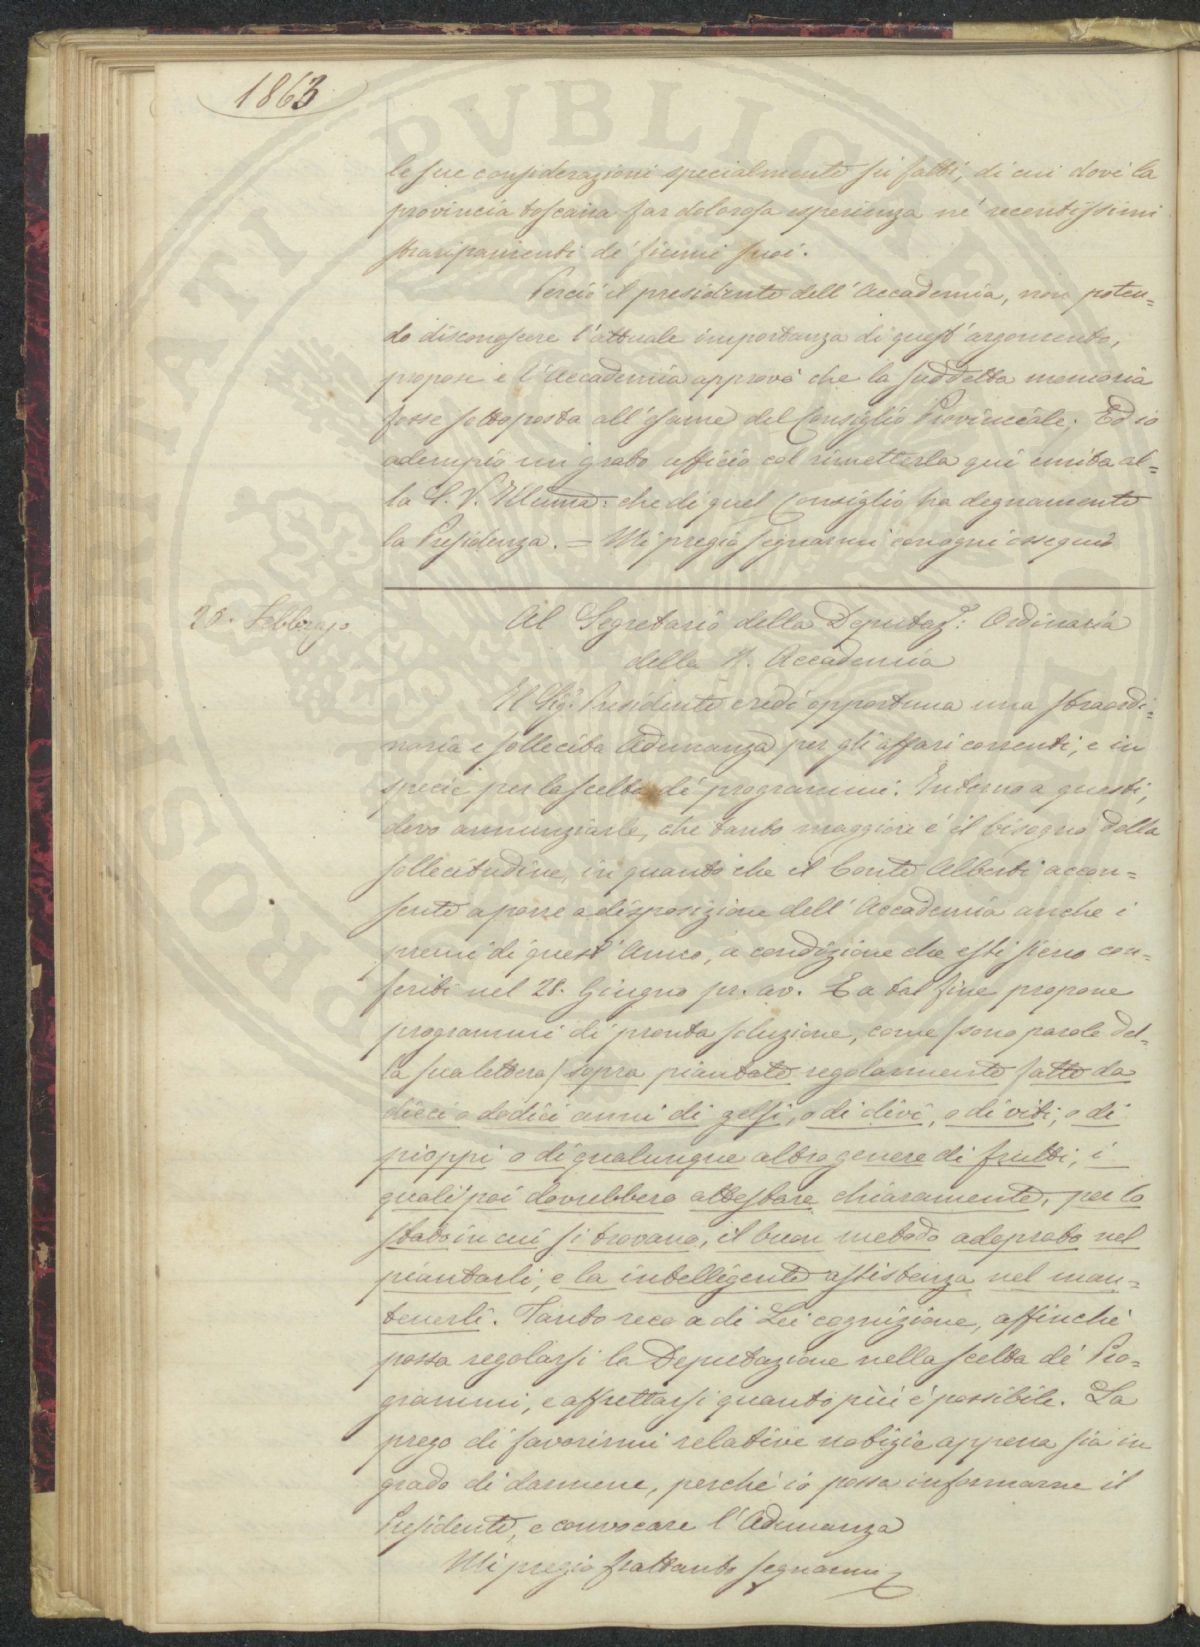 1863
le sue considerazioni specialmente su fatti, di cui dovè la
provincia toscana far dolorosa esperienza ne' recentissimi
straripamenti de' fiumi suoi.
Perciò il presidente dell'Accademia, non poten=
do disconoscere l'attuale importanza di quest'argomento,
propose e l'Accademia approvò che la suddetta memoria
fosse sottoposta all'esame del Consiglio Provinciale. Ed io
adempio un grato ufficio col rimetterla qui unita al=
la S. V. Illuma: che di quel Consiglio ha degnamente
la Presidenza. = Mi pregio segnarmi con ogni ossequio
Febbrajo
Al Segretario della Deputaz: Ordinaria
della N. Accademia
Il Sig: Presidente crede opportuna una straordi=
naria e sollecita Adunanza per gli affari correnti, e in
specie per la scelta de' programmi. Intorno a questi,
devo annunziarle, che tanto maggiore è il bisogno della
sollecitudine, in quanto che il Conte Alberti accon=
sente a porre a disposizione dell'Accademia anche i
premi di quest'Anno, a condizione che essi sieno con=
feriti nel 28. Giugno pr. av. E a tal fine propone
programmi di pronta soluzione, come (sono parole del=
la sua lettera) sopra piantate regolarmente fatte da
dieci o dodici anni di gelsi, o di ulivi, o di viti, o di
pioppi o di qualunque altro genere di frutti, i
quali poi dovrebbero attestare chiaramente, per lo
stato in cui si trovano, il buon metodo adeprato nel
piantarli, e la intelligente assistenza nel man=
tenerli. Tanto reco a di Lei cognizione, affinchè
possa regolarsi la Deputazione nella scelta de' Pro=
grammi, e affrettarsi quanto più è possibile. La
prego di favorirmi relative notizie appena sia in
grado di darmene, perchè io possa informarne il
Presidente, e convocare l'Adunanza
Mi pregio frattanto segnarmi